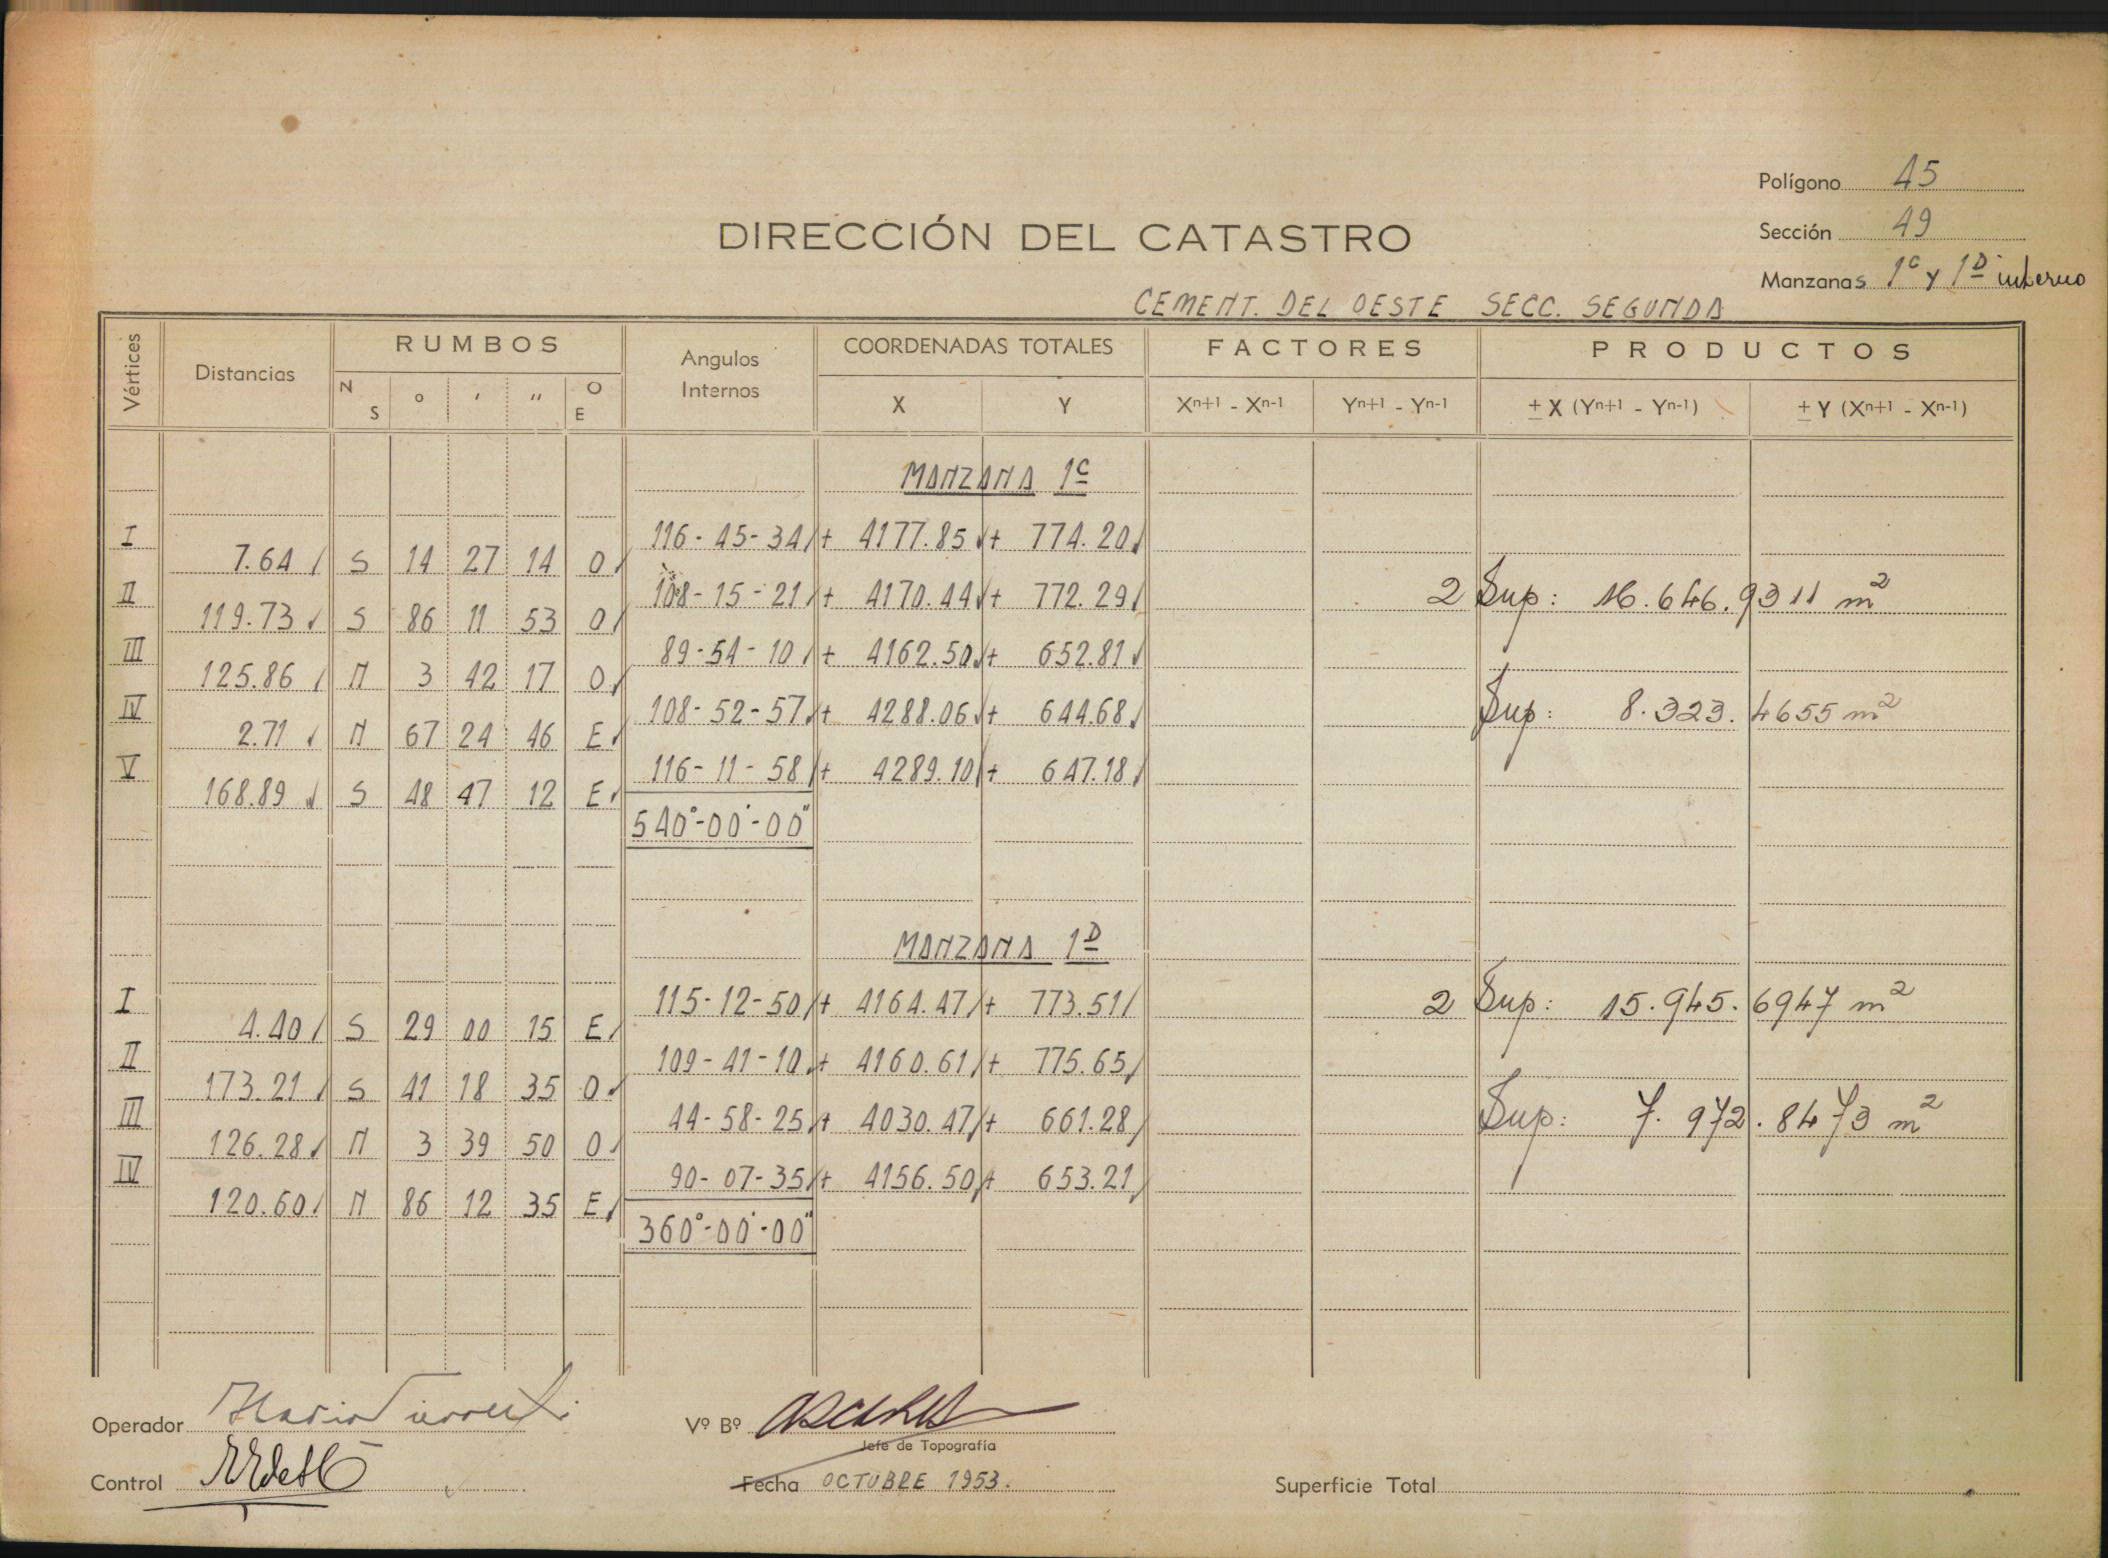 Polígono 45
Sección 49
DIRECCIÓN DEL CATASTRO
Manzanas 1C y 1D interno
CEMENT. DEL OESTE SECC. SEGUNDA
Vértices Distancias RUMBOS Angulos Internos COORDENADAS TOTALES FACTORES PRODUCTOS
N S ° ' '' O E X Y Xn+1 - Xn-1 Yn+1 - Yn-1 ± X (Yn+1 - Yn-1) ± Y (Xn+1 - Xn-1)
MANZANA 1C
I 116-45-34 + 4177.85 + 774.20
7.64 S 14 27 14 O
II 108-15-21 + 4170.44 + 772.29 2 Sup: 16.646.9311 m2
119.73 S 86 11 53 O
III 89-54-10 + 4162.50 + 652.81
125.86 N 3 42 17 O
IV 108-52-57 + 4288.06 + 644.68 Sup: 8.323.4655 m2
2.71 N 67 24 46 E
V 116-11-58 + 4289.10 + 647.18
168.89 S 48 47 12 E
540°-00'-00"
MANZANA 1D
I 115-12-50 + 4164.47 + 773.51 2 Sup: 15.945.6947 m2
4.40 S 29 00 15 E
II 109-41-10 + 4160.61 + 775.65
173.21 S 41 18 35 O
III 44-58-25 + 4030.47 + 661.28 Sup: 7.972.8473 m2
126.28 N 3 39 50 O
IV 90-07-35 + 4156.50 + 653.21
120.60 N 86 12 35 E
360°-00'-00"
Operador Vº Bº
Jefe de Topografía
Control Fecha OCTUBRE 1953. Superficie Total